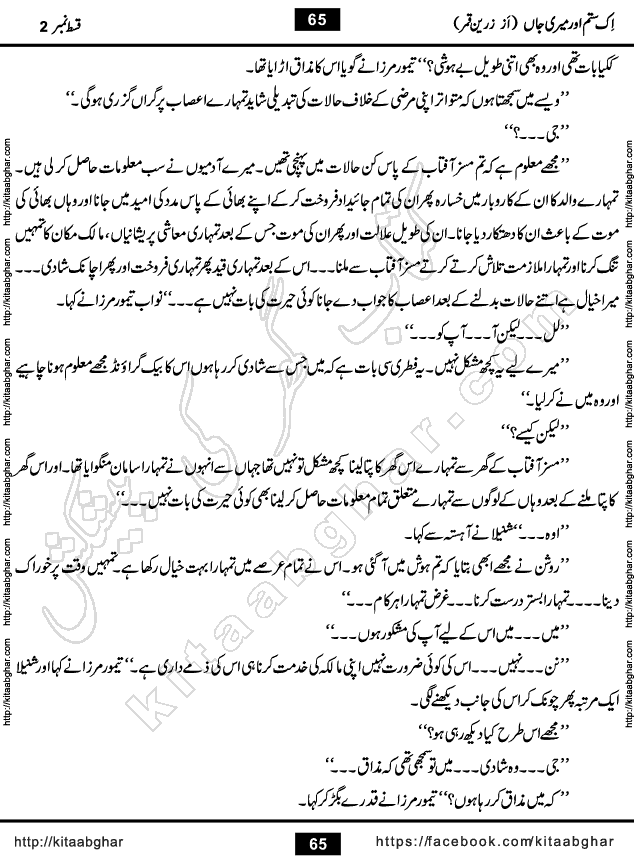 اِک ستم اور میری جاں (از زرین قمر) 65 قسط نمبر 2
کیا بات تھی اور وہ بھی اتنی طویل بے ہوشی؟‘‘ تیمور مرزا نے گویا اس کا مذاق اڑایا تھا۔
’’ویسے میں سمجھتا ہوں کہ متواتر اپنی مرضی کے خلاف حالات کی تبدیلی شاید تمہارے اعصاب پر گراں گزری ہوگی۔‘‘
’’جی۔۔۔؟‘‘
’’مجھے معلوم ہے کہ تم مسز آفتاب کے پاس کن حالات میں پہنچی تھیں۔ میرے آدمیوں نے سب معلومات حاصل کر لی ہیں۔
تمہارے والد کا ان کے کاروبار میں خسارہ پھر ان کی تمام جائیداد فروخت کر کے اپنے بھائی کے پاس مدد کی امید میں جانا اور وہاں بھائی کی
موت کے باعث ان کا دھتکار دیا جانا۔ ان کی طویل علالت اور پھر ان کی موت جس کے بعد تمہاری معاشی پریشانیاں، مالک مکان کا تمہیں
تنگ کرنا اور تمہارا ملازمت تلاش کرتے کرتے مسز آفتاب سے ملنا۔۔۔ اس کے بعد تمہاری قید پھر تمہاری فروخت اور پھر اچانک شادی۔۔۔
میرا خیال ہے اتنے حالات بدلنے کے بعد اعصاب کا جواب دے جانا کوئی حیرت کی بات نہیں ہے۔۔۔‘‘ نواب تیمور مرزا نے کہا۔
’’لل۔۔۔ لیکن آ۔۔۔ آپ کو۔۔۔‘‘
’’میرے لیے یہ کچھ مشکل نہیں۔ یہ فطری سی بات ہے کہ میں جس سے شادی کر رہا ہوں اس کا بیک گراؤنڈ مجھے معلوم ہونا چاہیے
اور وہ میں نے کرلیا۔‘‘
’’لیکن کیسے؟‘‘
’’مسز آفتاب کے گھر سے تمہارے اس گھر کا پتا لینا کچھ مشکل تو نہیں تھا جہاں سے انہوں نے تمہارا سامان منگوایا تھا۔ اور اس گھر
کا پتا ملنے کے بعد وہاں کے لوگوں سے تمہارے متعلق تمام معلومات حاصل کر لینا بھی کوئی حیرت کی بات نہیں۔۔۔‘‘
’’اوہ۔۔۔‘‘ شنیلا نے آہستہ سے کہا۔
’’روشن نے مجھے ابھی بتایا کہ تم ہوش میں آ گئی ہو۔ اس نے تمام عرصے میں تمہارا بہت خیال رکھا ہے۔ تمہیں وقت پر خوراک
دینا۔۔۔۔ تمہارا بستر درست کرنا۔۔۔ غرض تمہارا ہر کام۔۔۔‘‘
’’میں۔۔۔ میں اس کے لیے آپ کی مشکور ہوں۔۔۔‘‘
’’نن۔۔۔ نہیں۔۔۔ اس کی کوئی ضرورت نہیں اپنی مالکہ کی خدمت کرنا ہی اس کی ذمے داری ہے۔‘‘ تیمور مرزا نے کہا اور شنیلا
ایک مرتبہ پھر چونک کر اس کی جانب دیکھنے لگی۔
’’مجھے اس طرح کیا دیکھ رہی ہو؟‘‘
’’جی۔۔۔ وہ شادی۔۔۔ میں تو سمجھی تھی کہ مذاق۔۔۔‘‘
’’کہ میں مذاق کر رہا ہوں؟‘‘ تیمور مرزا نے قدرے بگڑ کر کہا۔
http://kitaabghar.com http://kitaabghar.com http://kitaabghar.com http://kitaabghar.com http://kitaabghar.com http://kitaabghar.com
http://kitaabghar.com http://kitaabghar.com http://kitaabghar.com http://kitaabghar.com http://kitaabghar.com http://kitaabghar.com
کتاب گھر کی پیشکش
kitaabghar.com
http://kitaabghar 65 https://facebook.com/kitaabghar